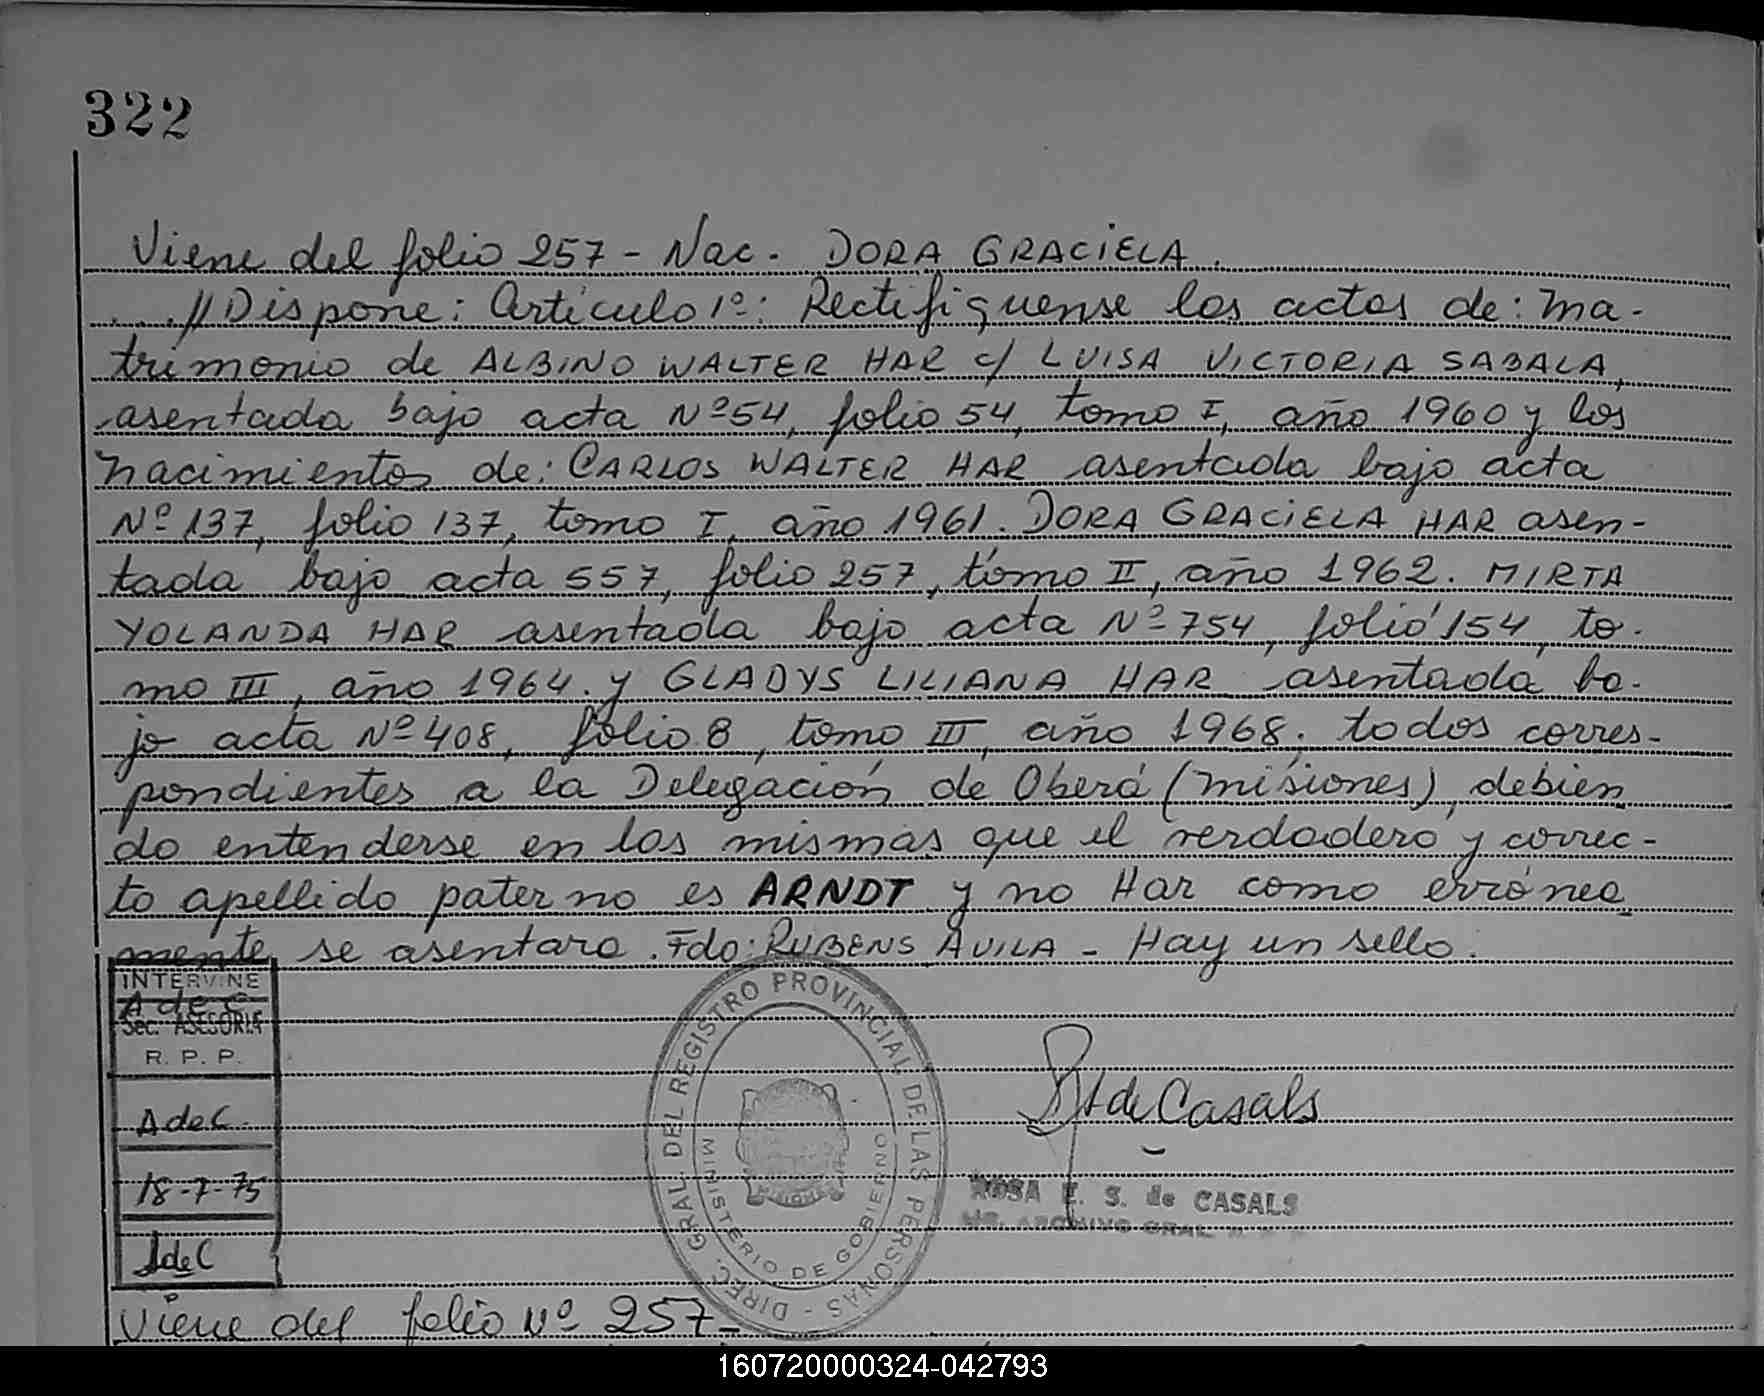 322
Viene del folio 257 - Nac. DORA GRACIELA.
. . .//Dispone: Artículo 1º: Rectifíquense las actas de: Ma-
trimonio de ALBINO WALTER HAR c/ LUISA VICTORIA SABALA,
asentada bajo acta Nº 54, folio 54, tomo I, año 1960 y los
nacimientos de: CARLOS WALTER HAR asentada bajo acta
Nº 137, folio 137, tomo I, año 1961. DORA GRACIELA HAR asen-
tada bajo acta 557, folio 257, tomo II, año 1962. MIRTA
YOLANDA HAR asentada bajo acta Nº 754, folio 154, to-
mo III, año 1964. y GLADYS LILIANA HAR asentada ba-
jo acta Nº 408, folio 8, tomo III, año 1968; todos corres-
pondientes a la Delegación de Oberá (Misiones), debien
do entenderse en las mismas que el verdadero y correc-
to apellido paterno es ARNDT y no Har como erronea
mente se asentara. Fdo: RUBENS AVILA - Hay un sello.
INTERVINE
A de C
Sec. ASESORIA
R. P. P.
A de C.
18-7-75
A de C
DIREC. GRAL. DEL REGISTRO PROVINCIAL DE LAS PERSONAS -
MINISTERIO DE GOBIERNO
de Casals
ROSA E. S. de CASALS
ARCHIVO GRAL.
Viene del folio Nº 257-
160720000324-042793